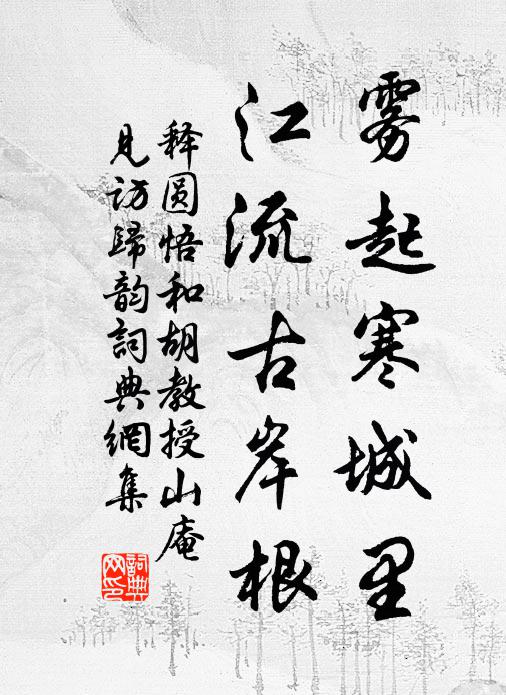 雾起寒城里
江流古岸根
释圆悟和胡教授山庵
见访归韵词典网集
詞典
网印